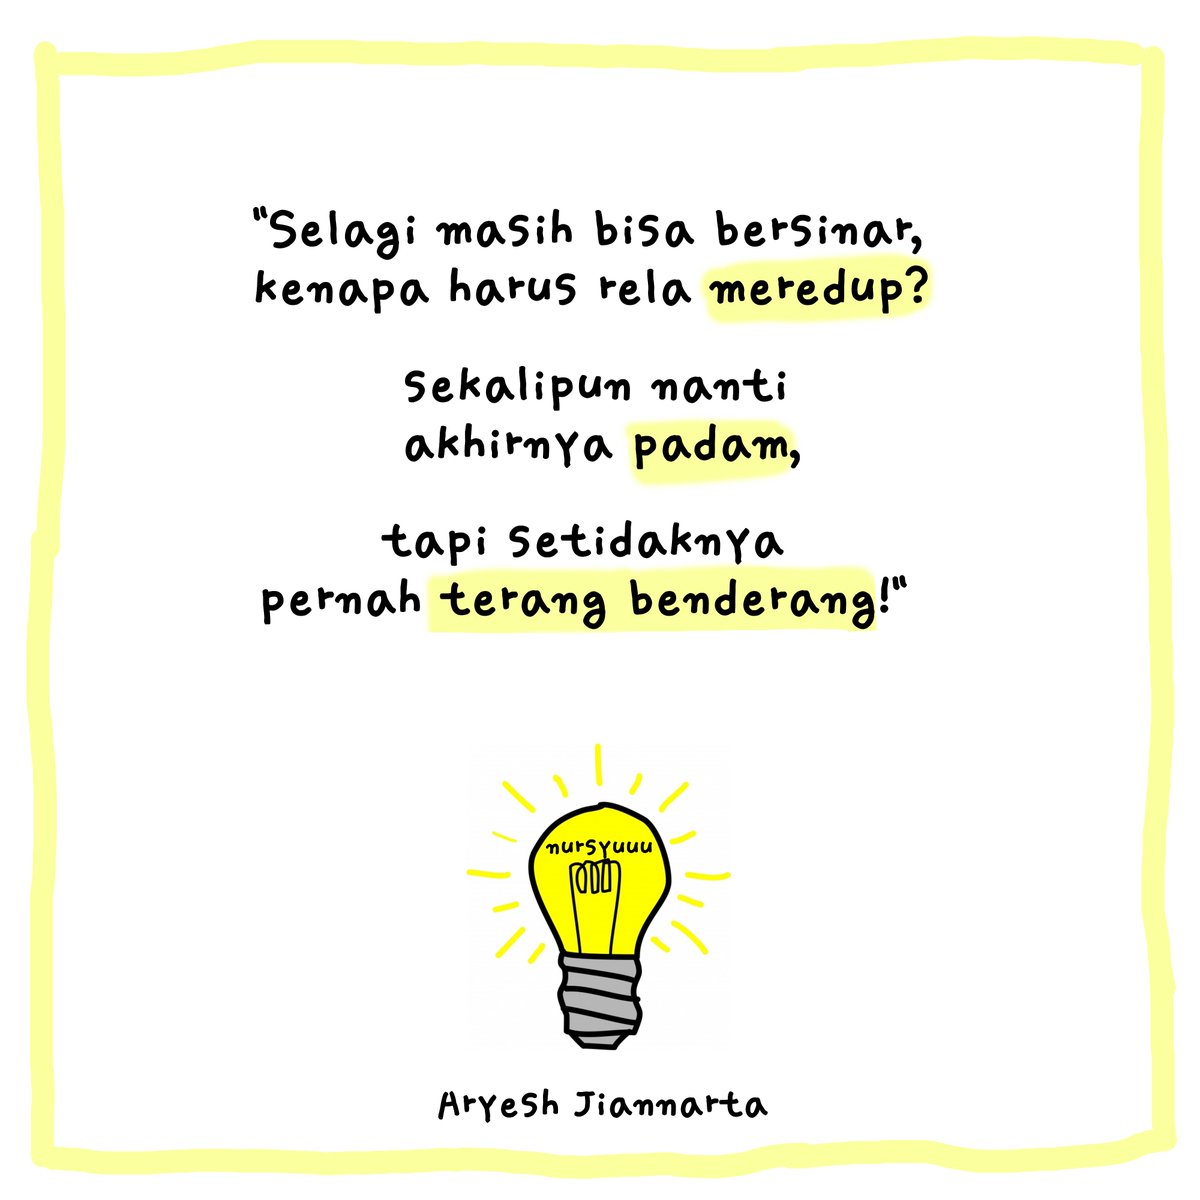 "Selagi masih bisa bersinar,
kenapa harus rela meredup?
Sekalipun nanti
akhirnya padam,
tapi setidaknya
pernah terang benderang!"
nursyuuu
Aryesh Jiannarta